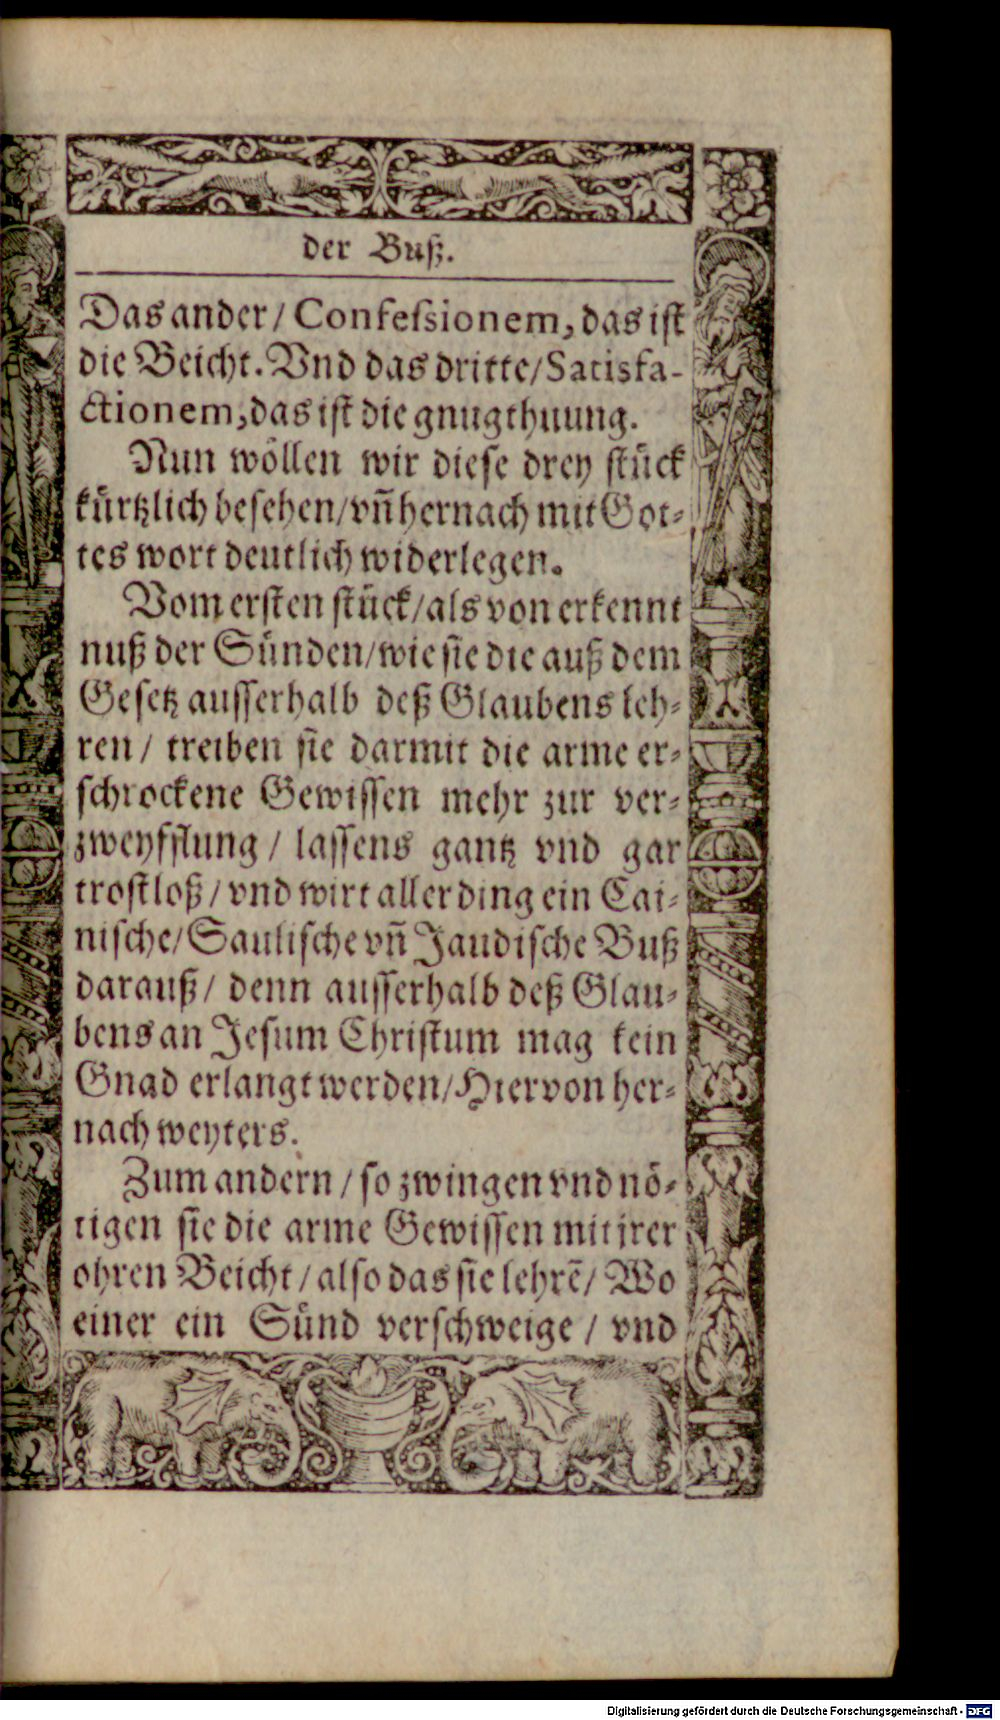 der Buß.
Das ander / Confeſsionem, das iſt
die Beicht. Vnd das dritte / Satisfa-
ctionem, das iſt die gnugthuung.
Nun wöllen wir dieſe drey ſtück
kürtzlich beſehen / vñ hernach mit Got-
tes wort deutlich widerlegen.
Vom erſten ſtück / als von erkennt
nuß der Sünden / wie ſie die auß dem
Geſetz auſſerhalb deß Glaubens leh-
ren / treiben ſie darmit die arme er-
ſchrockene Gewiſſen mehr zur ver-
zweyfflung / laſſens gantz vnd gar
troſtloß / vnd wirt aller ding ein Cai-
niſche / Sauliſche vñ Jaudiſche Buß
darauß / denn auſſerhalb deß Glau-
bens an Jeſum Chriſtum mag kein
Gnad erlangt werden / Hiervon her-
nach weyters.
Zum andern / ſo zwingen vnd nö-
tigen ſie die arme Gewiſſen mit jrer
ohren Beicht / alſo das ſie lehrē / Wo
einer ein Sünd verſchweige / vnd
Digitalisierung gefördert durch die Deutsche Forschungsgemeinschaft - DFG